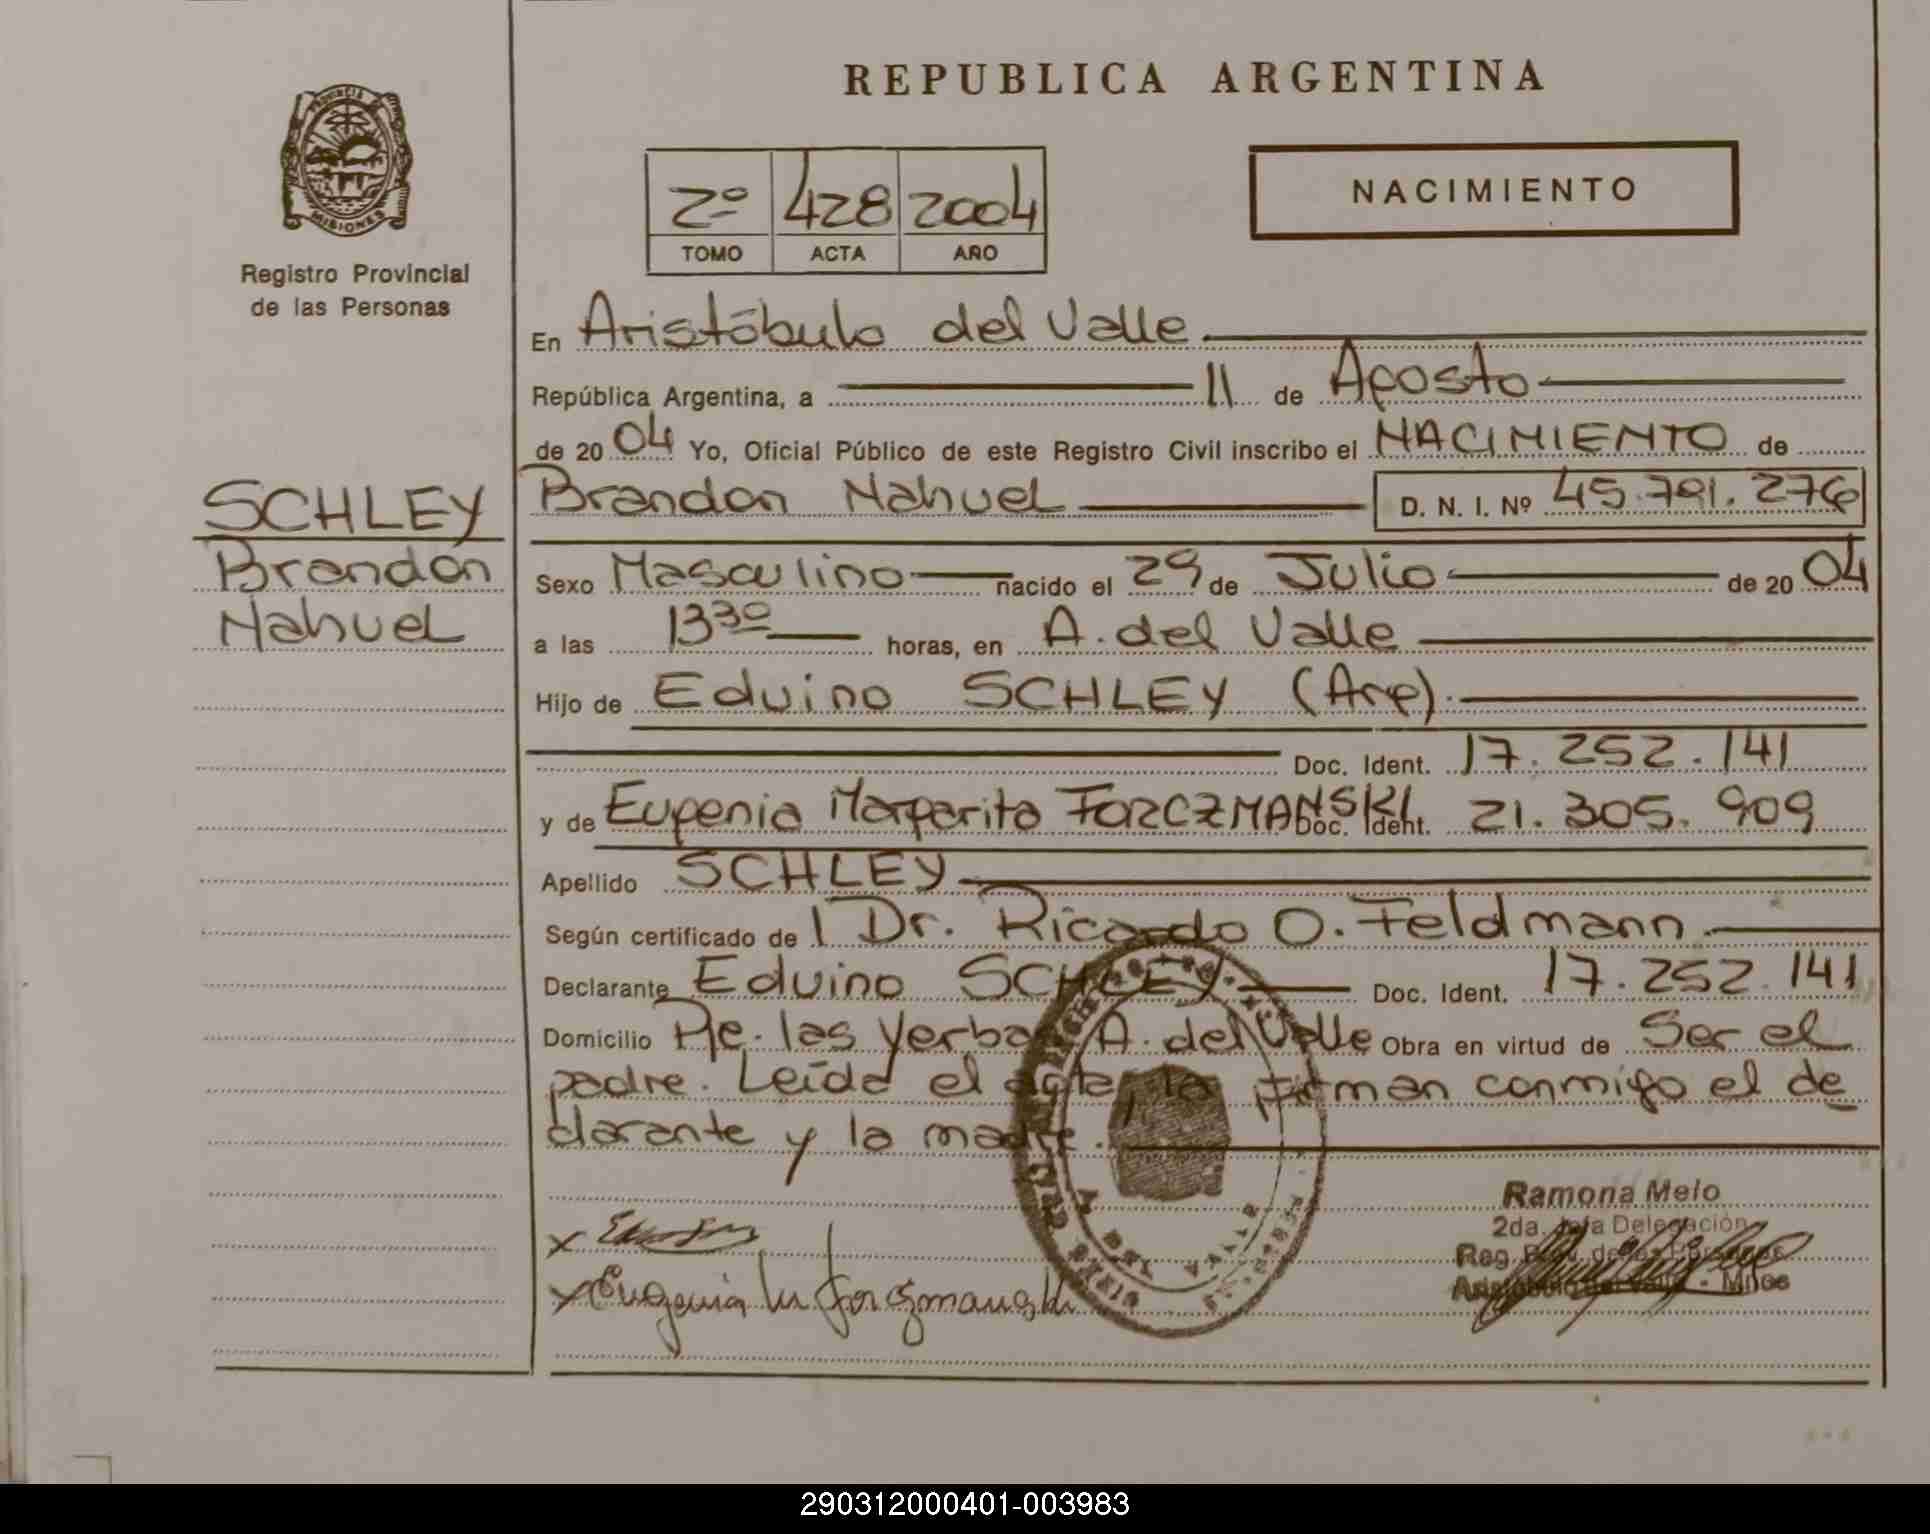 REPUBLICA ARGENTINA
PROVINCIA DE
MISIONES
Registro Provincial
de las Personas
2º 428 2004
TOMO ACTA AÑO
NACIMIENTO
En Aristóbulo del Valle
República Argentina, a 11 de Agosto
de 2004 Yo, Oficial Público de este Registro Civil inscribo el NACIMIENTO de
SCHLEY
Brandon
Nahuel
Brandon Nahuel D. N. I. Nº 45.791.276
Sexo Masculino nacido el 29 de Julio de 2004
a las 13 30 horas, en A. del Valle
Hijo de Eduino SCHLEY (Arg).
Doc. Ident. 17.252.141
y de Eugenia Margarita FORCZMANSKI Doc. Ident. 21.305.909
Apellido SCHLEY
Según certificado de l Dr. Ricardo O. Feldmann
Declarante Eduino SCHLEY Doc. Ident. 17.252.141
Domicilio Pje. las Yerbas A. del Valle Obra en virtud de Ser el
padre. Leída el acta, la firman conmigo el de
clarante y la madre.
Ramona Melo
2da. Jefa Delegación
Reg. Prov. de las Personas
Aristóbulo del Valle - Mnes
x
x Eugenia M Forczmanski
A. DEL VALLE
290312000401-003983